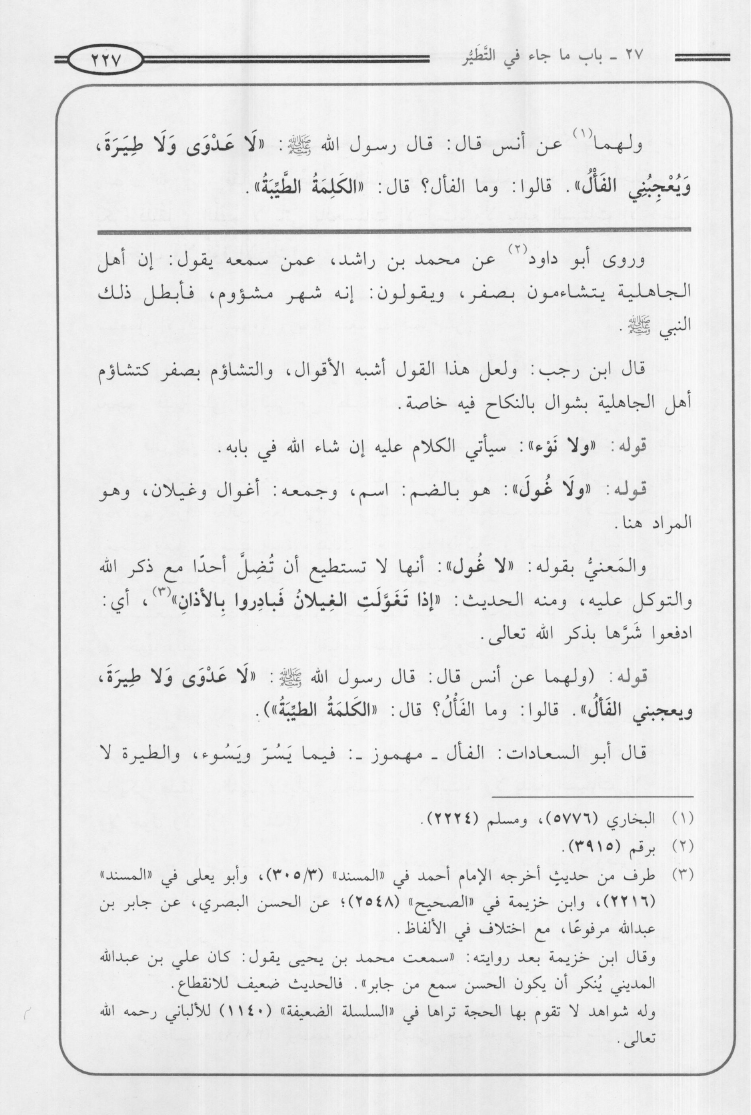 ٢٧ ـ باب ما جاء في التَّطَيُّر
٢٢٧
ولهما(١) عن أنس قال: قال رسول الله ﷺ: «لَا عَدْوَى وَلَا طِيَرَةَ،
وَيُعْجِبُنِي الفَأْلُ». قالوا: وما الفأل؟ قال: «الكَلِمَةُ الطَّيِّبَةُ».
وروى أبو داود(٢) عن محمد بن راشد، عمن سمعه يقول: إن أهل
الجاهلية يتشاءمون بصفر، ويقولون: إنه شهر مشؤوم، فأبطل ذلك
النبي ﷺ.
قال ابن رجب: ولعل هذا القول أشبه الأقوال، والتشاؤم بصفر كتشاؤم
أهل الجاهلية بشوال بالنكاح فيه خاصة.
قوله: «ولا نَوْء»: سيأتي الكلام عليه إن شاء الله في بابه.
قوله: «ولَا غُولَ»: هو بالضم: اسم، وجمعه: أغوال وغيلان، وهو
المراد هنا.
والمَعنيُّ بقوله: «لا غُول»: أنها لا تستطيع أن تُضِلَّ أحدًا مع ذكر الله
والتوكل عليه، ومنه الحديث: «إذا تَغَوَّلَتِ الغِيلانُ فَبادِروا بِالأذانِ»(٣)، أي:
ادفعوا شَرَّها بذكر الله تعالى.
قوله: (ولهما عن أنس قال: قال رسول الله ﷺ: «لَا عَدْوَى وَلا طِيرَةَ،
ويعجبني الفَألُ». قالوا: وما الفَأْلُ؟ قال: «الكَلمَةُ الطيِّبَةُ»).
قال أبو السعادات: الفأل ـ مهموز ـ: فيما يَسُرّ ويَسُوء، والطيرة لا
(١) البخاري (٥٧٧٦)، ومسلم (٢٢٢٤).
(٢) برقم (٣٩١٥).
(٣) طرف من حديثٍ أخرجه الإمام أحمد في «المسند» (٣٠٥/٣)، وأبو يعلى في «المسند»
(٢٢١٦)، وابن خزيمة في «الصحيح» (٢٥٤٨)؛ عن الحسن البصري، عن جابر بن
عبدالله مرفوعًا، مع اختلاف في الألفاظ.
وقال ابن خزيمة بعد روايته: «سمعت محمد بن يحيى يقول: كان علي بن عبدالله
المديني يُنكر أن يكون الحسن سمع من جابر». فالحديث ضعيف للانقطاع.
وله شواهد لا تقوم بها الحجة تراها في «السلسلة الضعيفة» (١١٤٠) للألباني رحمه الله
تعالى.